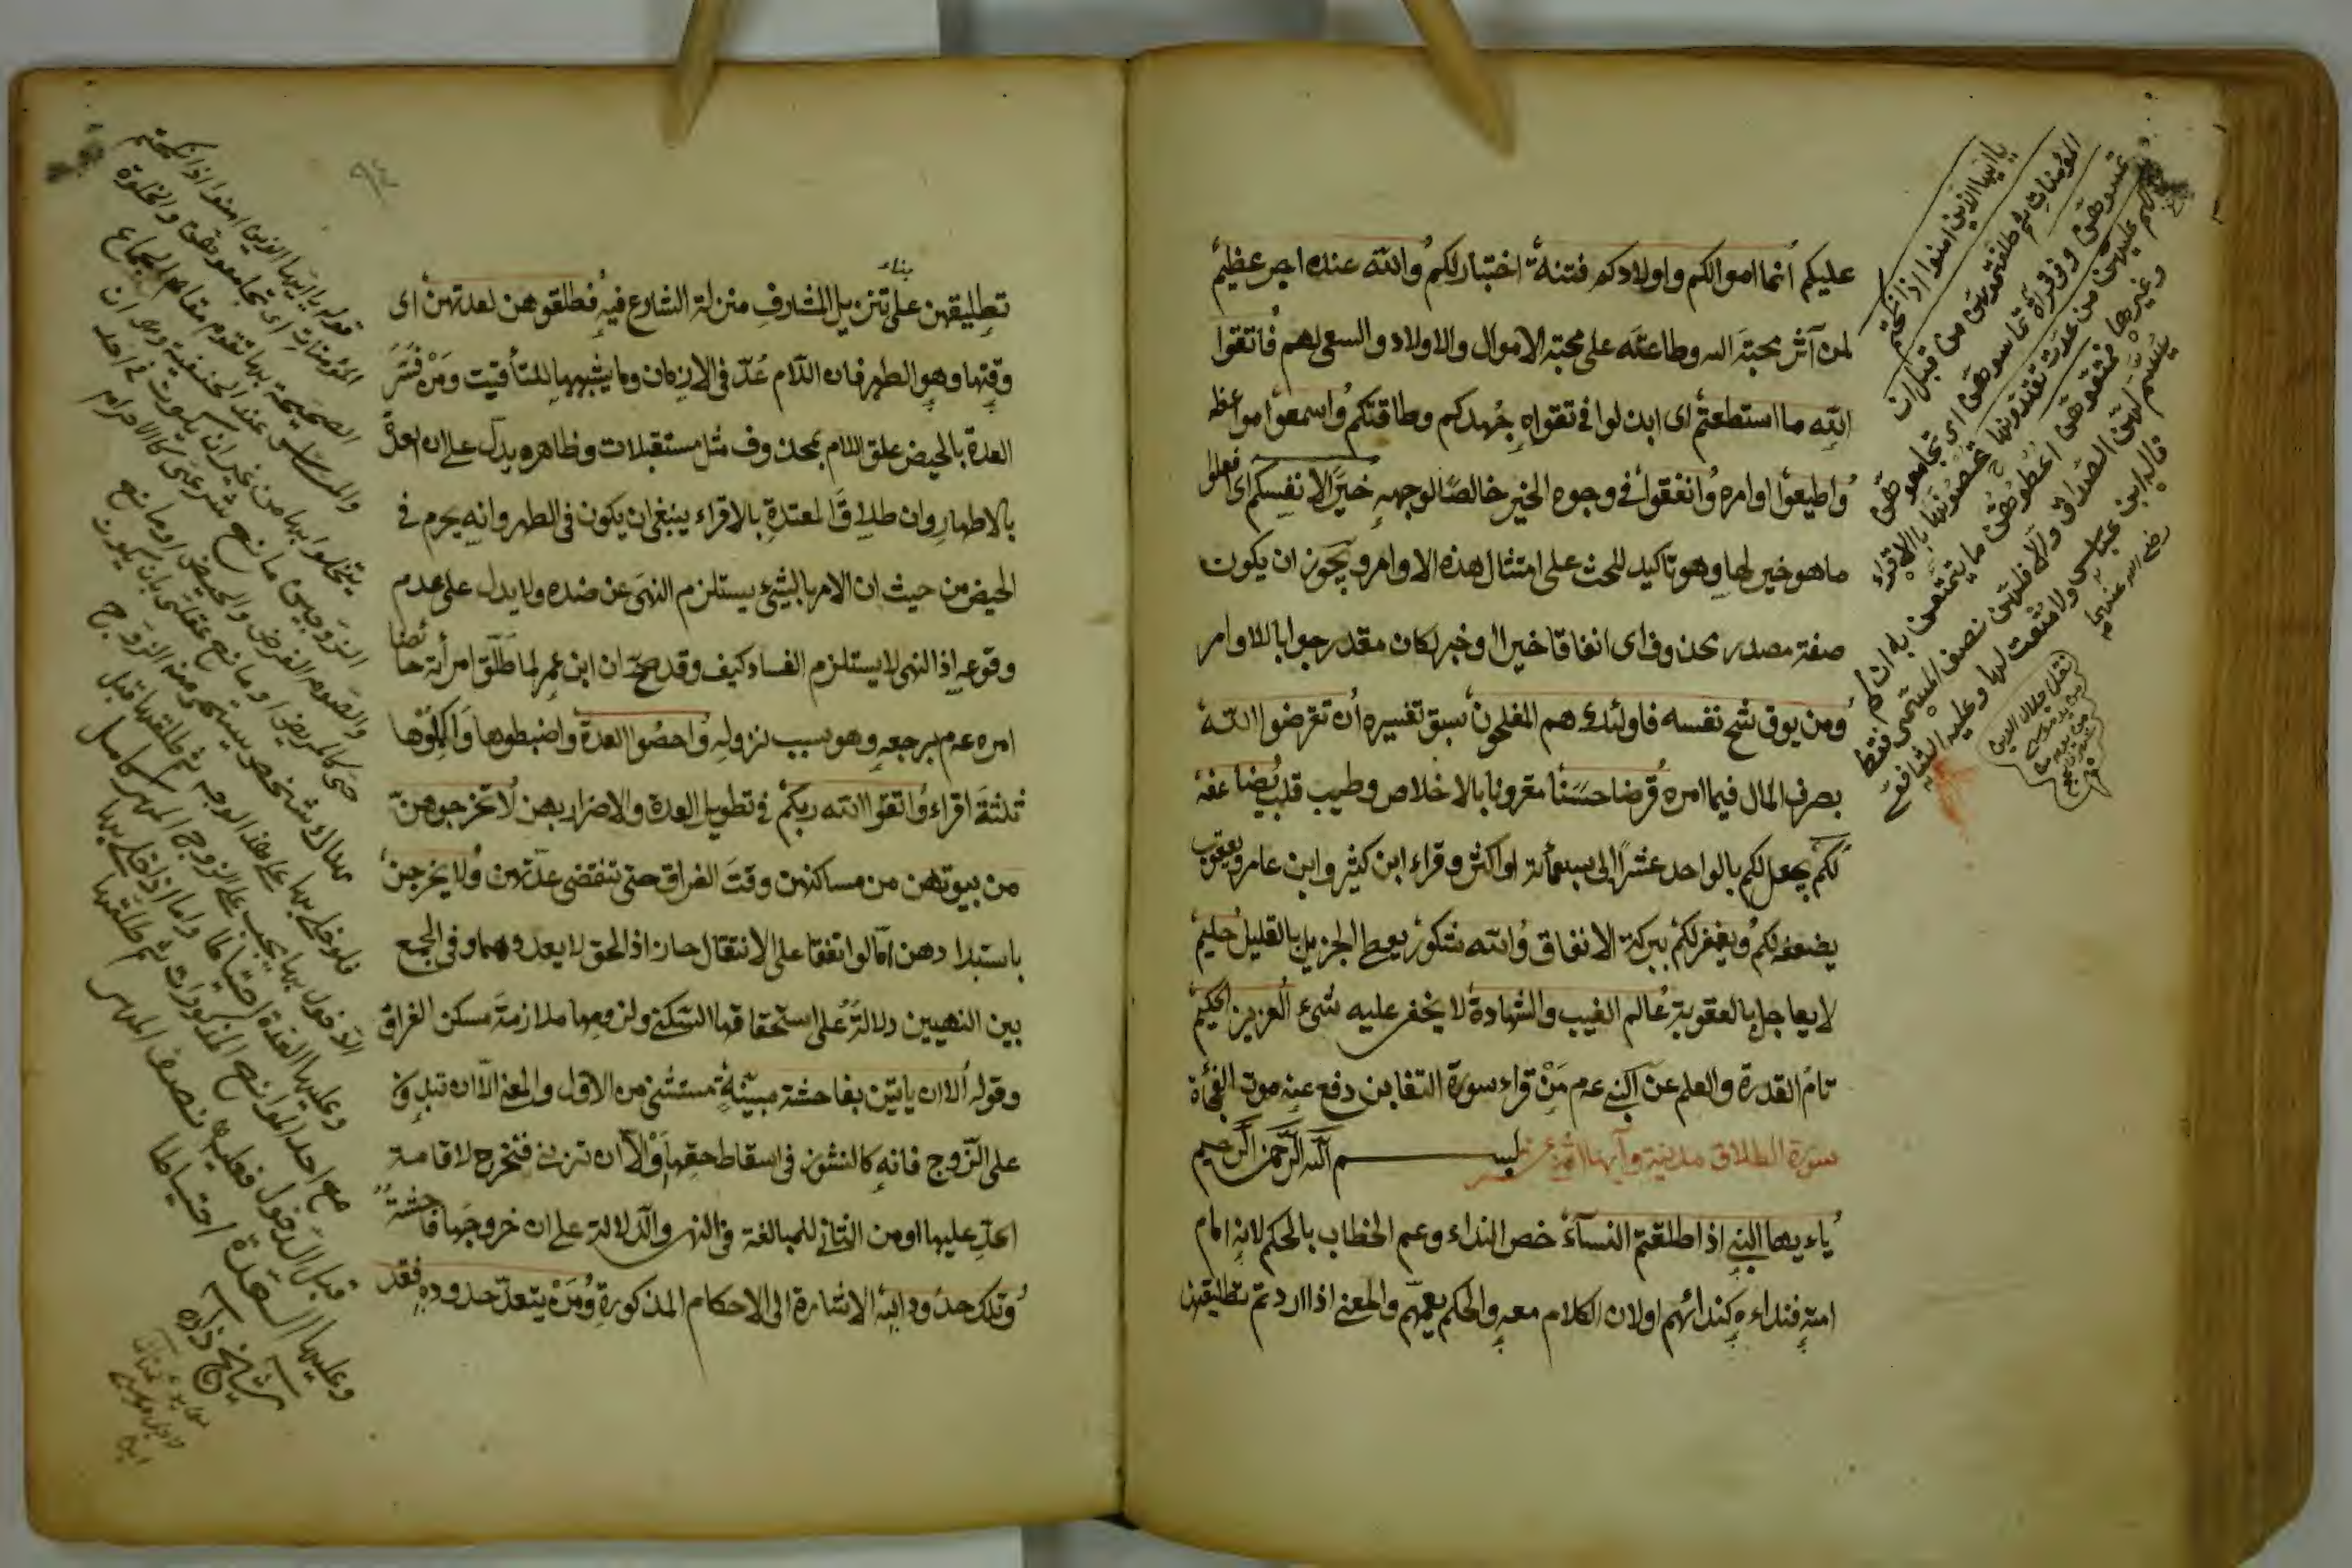 عليكم انما اموالكم واولادكم فتنة اختبار لكم والله عنده اجر عظيم
لمن آثر محبة الله وطاعته على محبة الاموال والاولاد والسعى لهم فاتقوا
الله ما استطعتم اى ابذلوا فى تقواه جهدكم وطاقتكم واسمعوا مواعظه
واطيعوا اوامره وانفقوا فى وجوه الخير خالصا لوجهه خيرا لانفسكم اى افعلوا
ما هو خير لها وهو تاكيد للحث على امتثال هذه الاوامر ويجوز ان يكون
صفة مصدر محذوف اى انفاقا خيرا او خبر لكان مقدر جوابا للاوامر
ومن يوق شح نفسه فاولئك هم المفلحون سبق تفسيره ان تقرضوا الله
بصرف المال فيما امره قرضا حسنا مقرونا بالاخلاص وطيب قلب يضاعفه
لكم يجعل لكم بالواحد عشرا الى سبعمائة او اكثر وقراء ابن كثير وابن عامر ويعقوب
يضعفه لكم ويغفر لكم ببركة الانفاق والله شكور يعطى الجزيل بالقليل حليم
لا يعاجل بالعقوبة عالم الغيب والشهادة لا يخفى عليه شئ العزيز الحكيم
تام القدرة والعلم عن النبى عم من قراء سورة التغابن دفع عنه موت الفجأة
سورة الطلاق مدنية وآيها اثنتا عشر بسم الله الرحمن الرحيم
ياءيها النبى اذا طلقتم النساء خص النداء وعم الخطاب بالحكم لانه امام
امته فنداءه كندائهم او لان الكلام معه والحكم يعمهم والمعنى اذا اردتم تطليقهن
يا ايها الذين امنوا اذا نكحتم
المؤمنات ثم طلقتموهن من قبل ان
تمسوهن وفى قرأة تماسوهن اى تجامعوهن
فما لكم عليهن من عدة تعتدونها تحصونها بالاقراء
وغيرها فمتعوهن اعطوهن ما يتمتعن به ان لم
يسم لهن الصداق والا فلهن نصف المسمى فقط
قاله ابن عباس ولا متعت لها وعليه الشافعى
رضى الله عنهما
نقل جلال الدين
٩٤
بناء
تطليقهن على تنزيل المشارف منزلة الشارع فيه فطلقوهن لعدتهن اى
وقتها وهو الطهر فان اللام عد فى الازمان وما يشبهها للتأقيت ومن فسر
العدة بالحيض علق اللام بمحذوف مثل مستقبلات وظاهره يدل على ان العدة
بالاطهار وان طلاق المعتدة بالاقراء ينبغى ان يكون فى الطهر وانه يحرم فى
الحيض من حيث ان الامر بالشئ يستلزم النهى عن ضده ولا يدل على عدم
وقوعه اذ النهى لا يستلزم الفساد كيف وقد صح ان ابن عمر لما طلق امرأته حائضا
امره عم برجعه وهو سبب نزوله واحصوا العدة واضبطوها واكملوها
ثلثة اقراء واتقوا الله ربكم فى تطويل العدة والاضرار بهن لا تخرجوهن
من بيوتهن من مساكنهن وقت الفراق حتى تنقضى عدتهن ولا يخرجن
باستبدادهن امّا لو اتفقا على الانتقال جاز اذ الحق لا يعدوهما وفى الجمع
بين النهيين دلالة على استحقاقها السكنى ولزومها ملازمة مسكن الفراق
وقوله الا ان ياتين بفاحشة مبينة مستثنى من الاول والمعنى الا ان تبذو
على الزوج فانه كالنشوز فى اسقاط حقها او الا ان تزنى فتخرج لاقامة
الحد عليها او من الثانى للمبالغة فى النهى والدلالة على ان خروجها فاحشة
وتلك حدود الله الاشارة الى الاحكام المذكورة ومن يتعد حدوده فقد
قوله يا ايها الذين امنوا اذا نكحتم
المؤمنات اى تجامعوهن والخلوة
الصحيحة بها تقوم مقام الجماع
عند الحنفية وهى ان
يتخلوا بها من غير ان يكون فى احد
الزوجين مانع شرعى كالاحرام
والصوم الفرض والحيض او مانع
حسى كالمريض او مانع عقلى بان يكون
هناك شخص يستحى منه الزوج
فلو خلى بها على هذا الوجه ثم طلقها قبل
الدخول بها يجب على الزوج المهر كاملا
وعليها العدة احتياطا واما اذا خلى بها
مع احد الموانع المذكورات ثم طلقها
قبل الدخول فعليه نصف المهر
وعليها العدة احتياطا
شيخ زاده